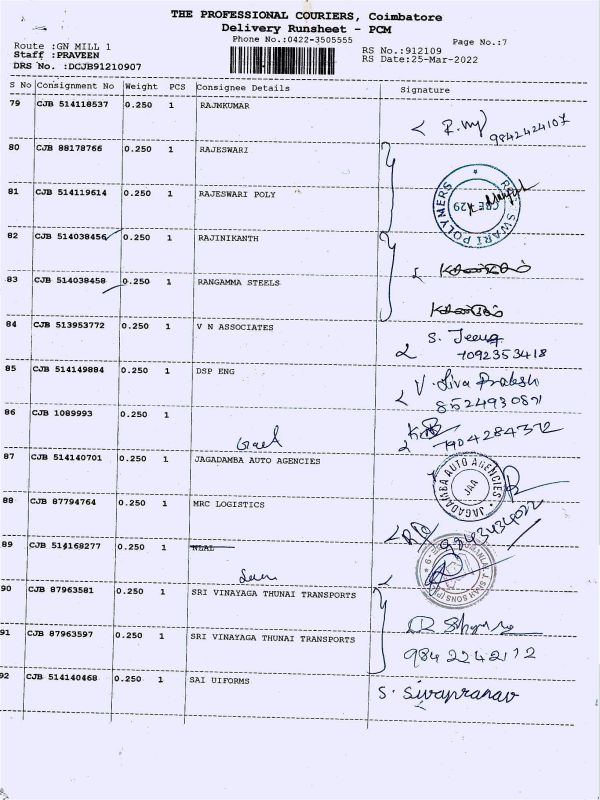 THE PROFESSIONAL COURIERS, Coimbatore
Delivery Runsheet - PCM
Phone No.:0422-3505555
Page No.:7
Route :GN MILL 1
Staff :PRAVEEN
DRS No. :DCJB91210907
RS No.:912109
RS Date:25-Mar-2022
S No Consignment No Weight PCS Consignee Details Signature
79 CJB 514118537 0.250 1 RAJMKUMAR
9842424107
80 CJB 88178766 0.250 1 RAJESWARI
81 CJB 514119614 0.250 1 RAJESWARI POLY
SWARI POLYMERS
CBE 29
82 CJB 514038456 0.250 1 RAJINIKANTH
83 CJB 514038458 0.250 1 RANGAMMA STEELS
84 CJB 513953772 0.250 1 V N ASSOCIATES
7092353418
85 CJB 514149884 0.250 1 DSP ENG
V. Siva Prakash
8524930821
86 CJB 1089993 0.250 1
7904284372
87 CJB 514140701 0.250 1 JAGADAMBA AUTO AGENCIES
JAGADAMBA AUTO AGENCIES
JAA
88 CJB 87794764 0.250 1 MRC LOGISTICS
9843434022
89 CJB 514168277 0.250 1
90 CJB 87963581 0.250 1 SRI VINAYAGA THUNAI TRANSPORTS
91 CJB 87963597 0.250 1 SRI VINAYAGA THUNAI TRANSPORTS
9842242112
92 CJB 514140468 0.250 1 SAI UIFORMS
S. Sivapranav